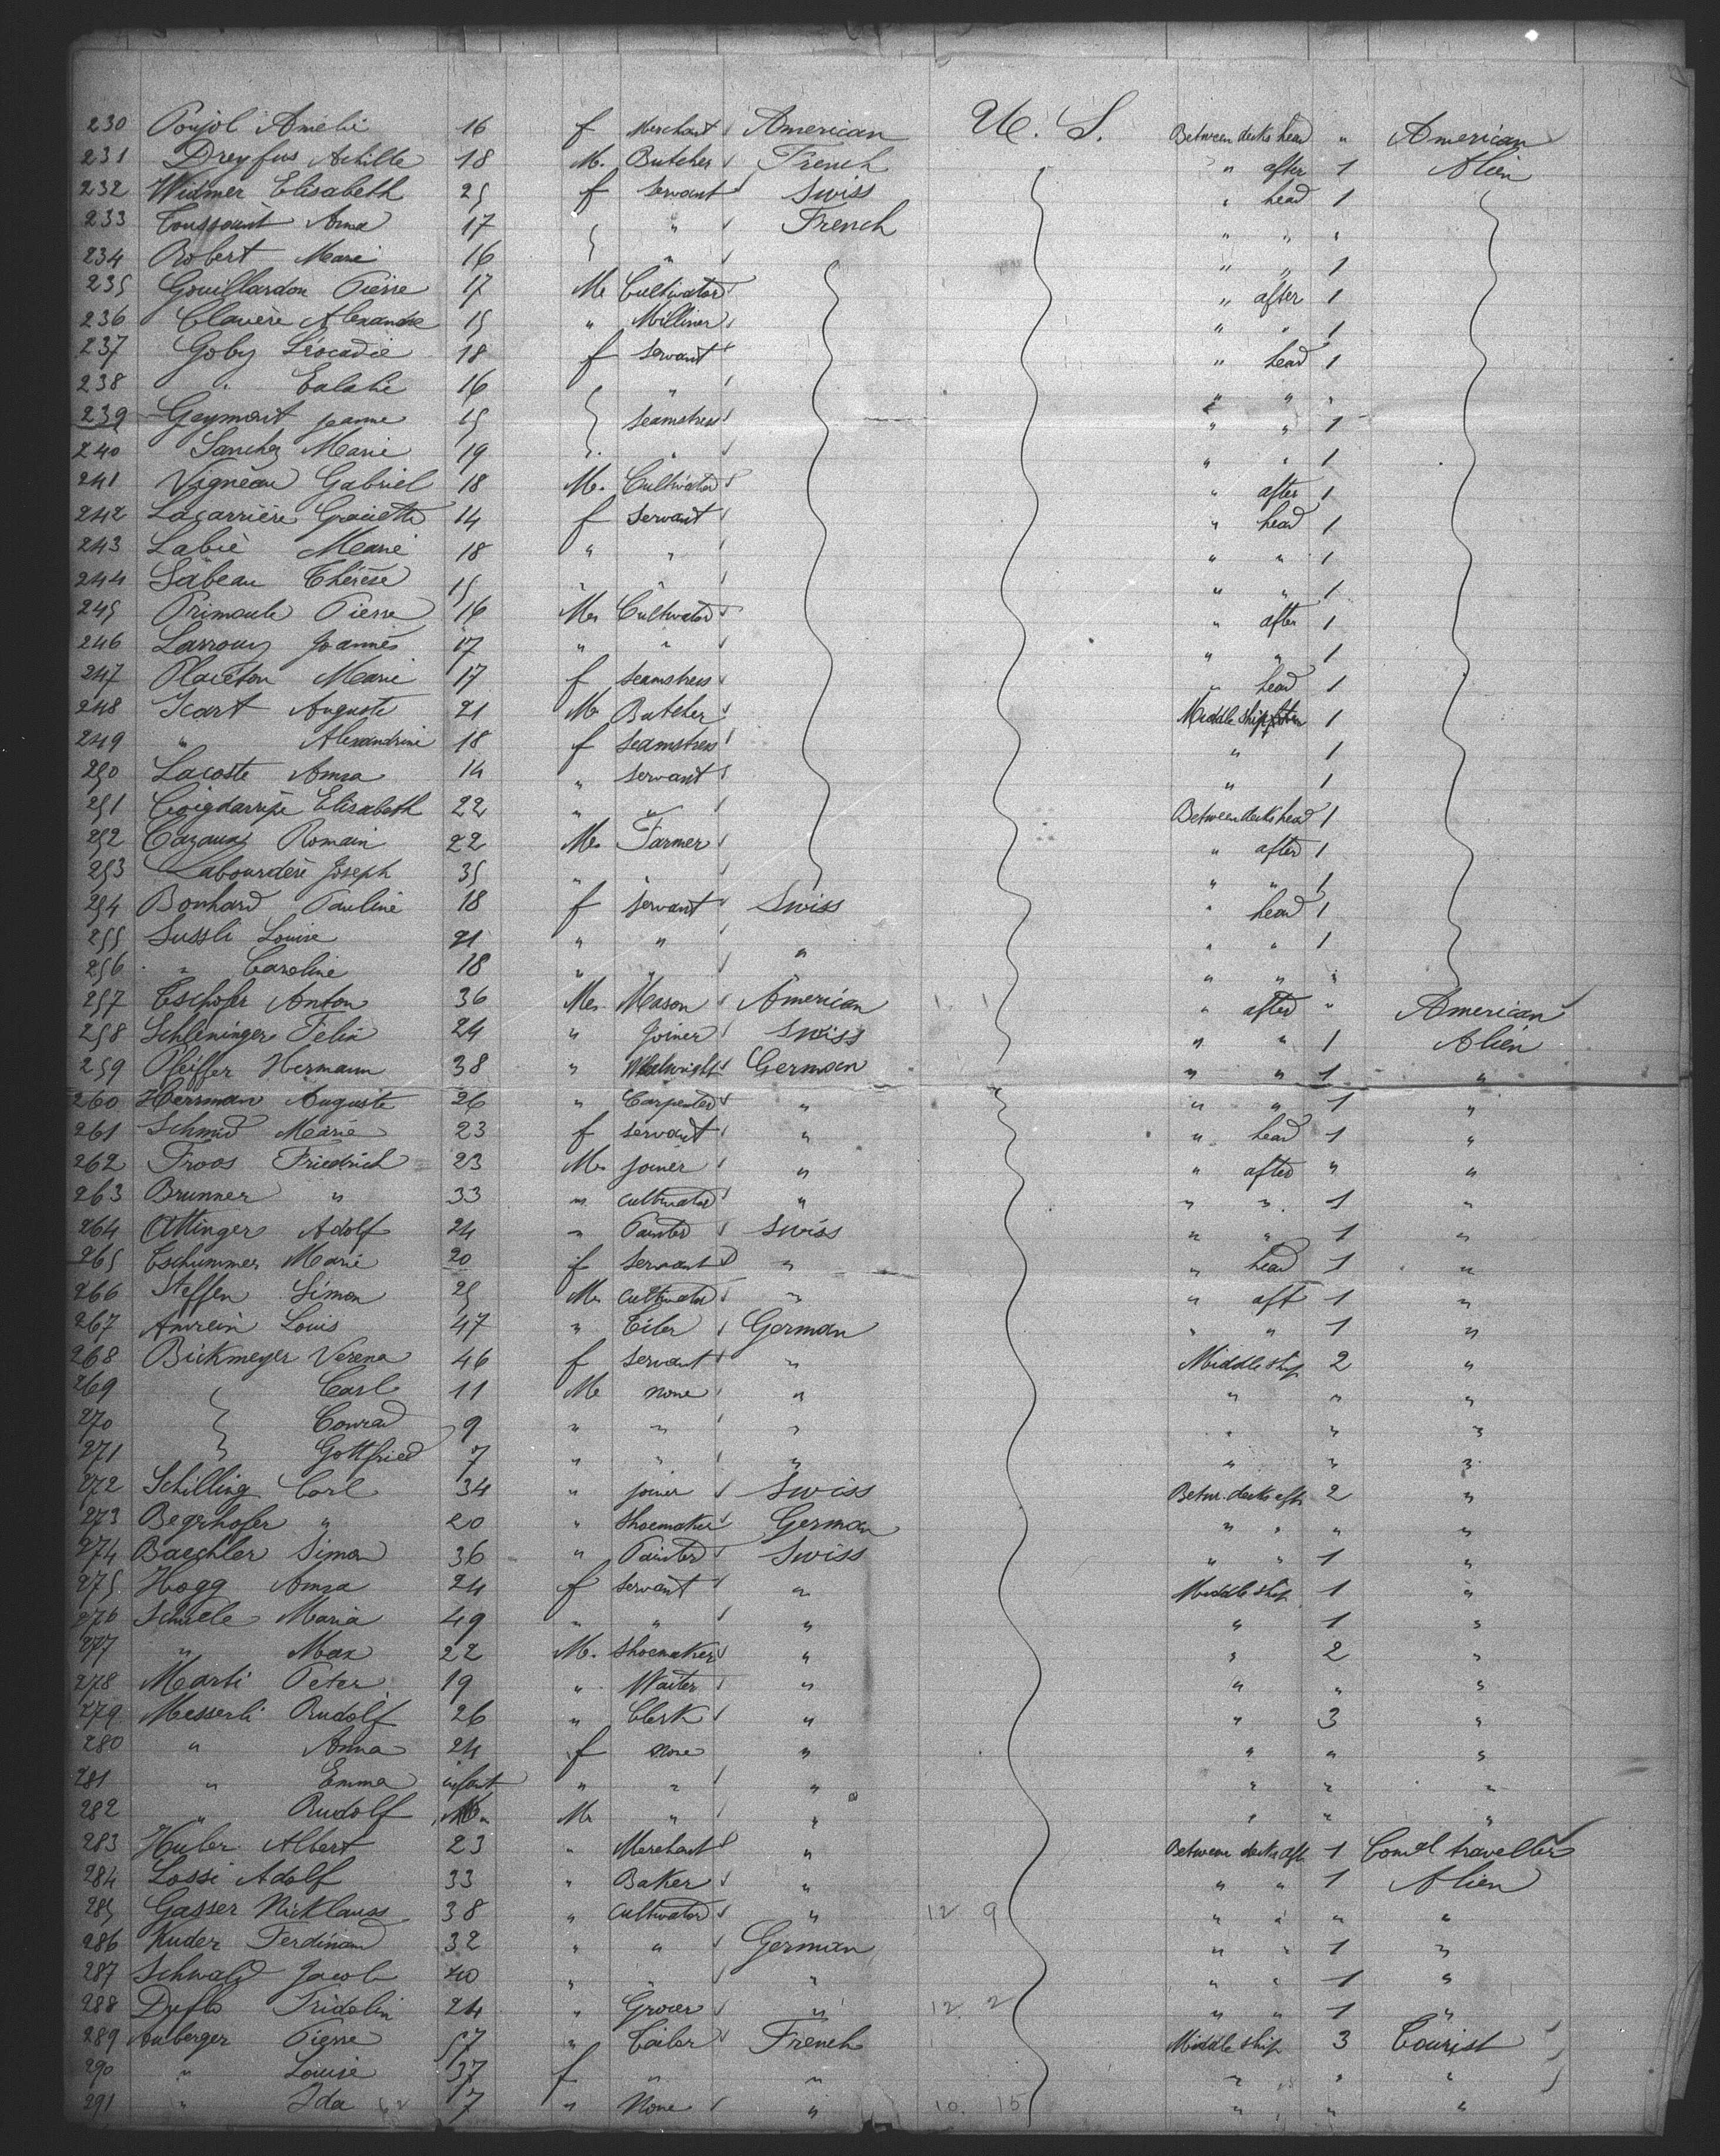 230 Poujol Amelie 16 f Merchant American U. S. Between decks head " American
231 Dreyfus Achille 18 M. Butcher French " after 1 Alien
232 Widmer Elisabeth 25 f servant Swiss " head 1
233 Toussaint Anna 17 " French " " "
234 Robert Marie 16 " " " 1
235 Gouillardon Pierre 17 M. Cultivator " after 1
236 Clavère Alexandre 15 " Milliner " " 1
237 Goby Léocadie 18 f servant " head 1
238 " Eulalie 16 " " " "
239 Gaymont Jeanne 15 seamstress " " 1
240 Sanchez Marie 19 " " " 1
241 Vigneau Gabriel 18 M. Cultivator " after 1
242 Lacarrière Graciette 14 f servant " head 1
243 Labié Marie 18 " " " " 1
244 Sabeau Thérèse 15 " " " " 1
245 Primoule Pierre 16 M. Cultivator " after 1
246 Larrouy Joannes 17 " " " " 1
247 Placéton Marie 17 f seamstress " head 1
248 Icart Auguste 21 M Butcher Middle ship 1
249 " Alexandrine 18 f seamstress " 1
250 Lacoste Anna 14 " servant " 1
251 Coigdarripe Elisabeth 22 " " Between decks head 1
252 Cazaux Romain 22 M. Farmer " after 1
253 Labourdère Joseph 35 " " " " 1
254 Bonhard Pauline 18 f servant Swiss " head 1
255 Sussli Louise 21 " " " " " 1
256 " Caroline 18 " " " " "
257 Tschofer Anton 36 M. Mason American " after " American
258 Schleninger Felix 24 " Joiner Swiss " " 1 Alien
259 Pfeiffer Hermann 38 " Wheelwright German " " 1 "
260 Herrman Auguste 26 " Carpenter " " " 1 "
261 Schmid Marie 23 f servant " " head 1 "
262 Troos Friedrich 23 M. joiner " " after " "
263 Brunner " 33 " cultivator " " " 1 "
264 Ottinger Adolf 24 " Painter Swiss " " 1 "
265 Tschummer Marie 20 f Servant " " head 1 "
266 Steffen Simon 25 M. cultivator " " aft 1 "
267 Amrein Louis 47 " Tiler German " " 1 "
268 Bickmeyer Verena 46 f servant " Middle ship 2 "
269 Carl 11 M none " " " "
270 Conrad 9 " " " " " "
271 Gottfried 7 " " " " " "
272 Schilling Carl 34 " joiner Swiss Betw. decks aft. 2 "
273 Begrhofer " 20 " Shoemaker German " " " "
274 Baechler Simon 36 " Painter Swiss " " 1 "
275 Hogg Anna 24 f servant " Middle ship 1 "
276 Schuele Maria 49 " " " " 1 "
277 " Max 22 M. Shoemaker " " 2 "
278 Marti Peter 19 " Waiter " " " "
279 Messerli Rudolf 26 " Clerk " " 3 "
280 " Anna 24 f none " " " "
281 " Emma infant " " " " " "
282 " Rudolf M " " " " "
283 Huber Albert 23 " Merchant " Between decks aft. 1 Comd traveller
284 Lossi Adolf 33 " Baker " " " 1 Alien
285 Gasser Nicklauss 38 " cultivator " 12 9 " " " "
286 Kuder Ferdinand 32 " " German " " 1 "
287 Schwald Jacob 40 " " " " " 1 "
288 Duflo Fridolin 24 " Grocer " 12 2 " " 1 "
289 Auberger Pierre 57 " Tailor French Middle ship 3 Tourist
290 " Louise 37 f " " " " "
291 " Ida 7 " None " 10. 15 " " "